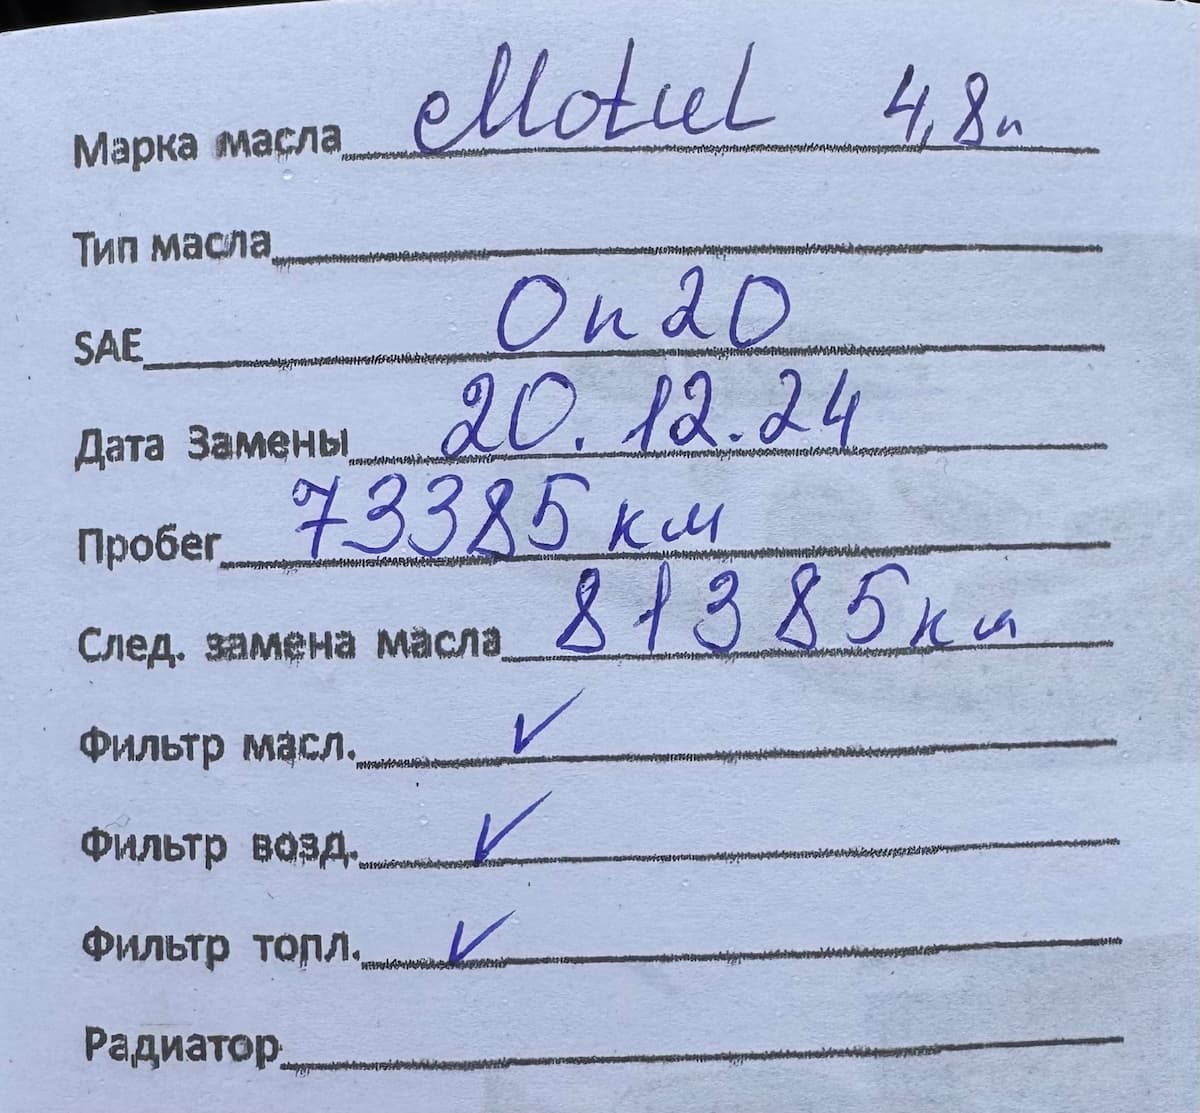 Марка масла Motul 4,8л
Тип масла
SAE 0п20
Дата Замены 20.12.24
Пробег 73385 км
След. замена масла 81385км
Фильтр масл. ✓
Фильтр возд. ✓
Фильтр топл. ✓
Радиатор